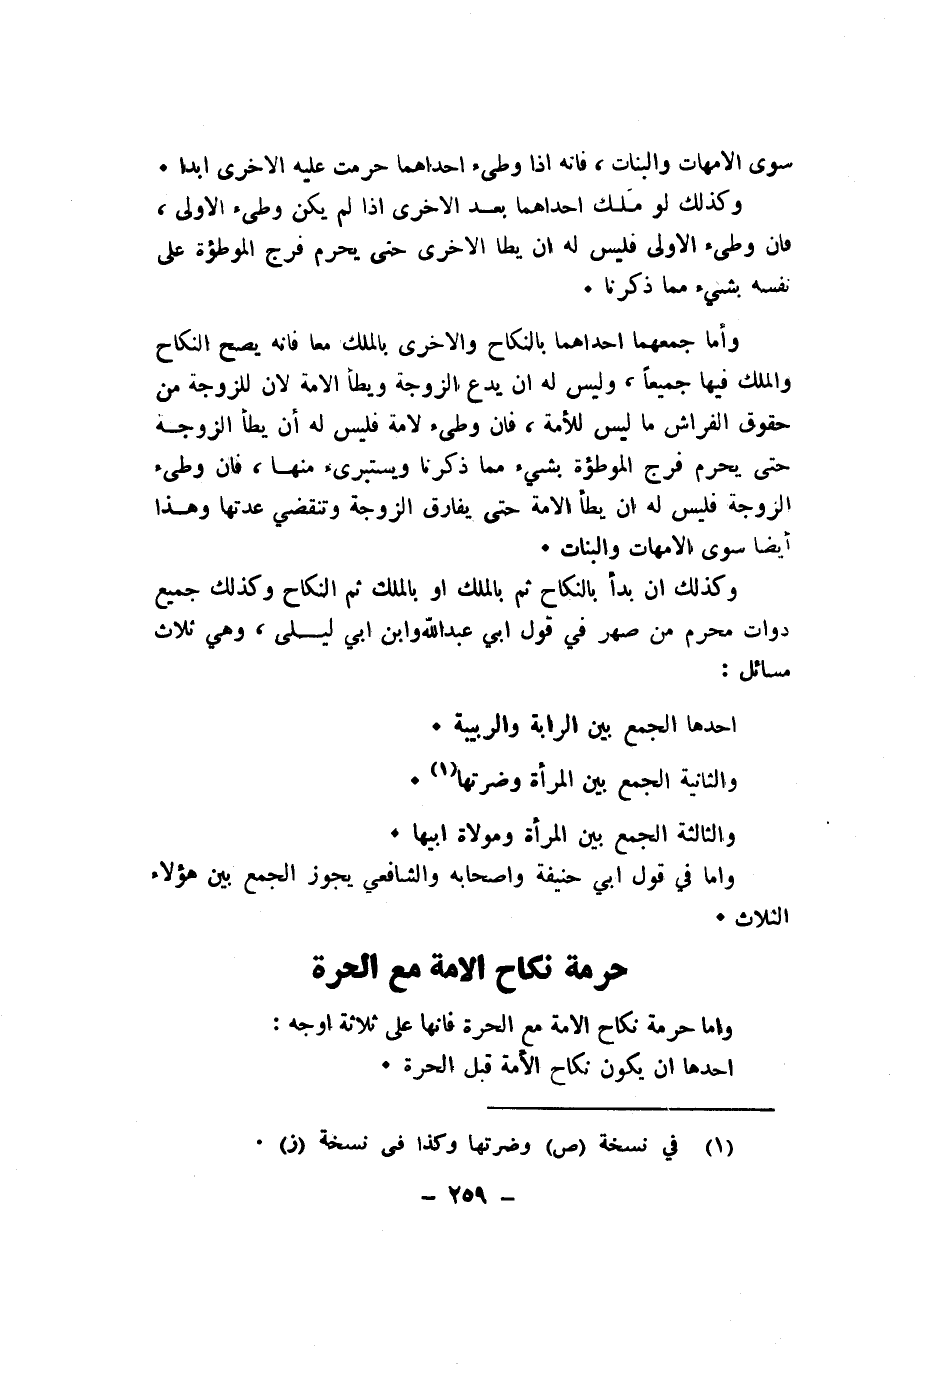 سوى الامهات والبنات ، فانه اذا وطىء احداهما حرمت عليه الاخرى ابدا •
وكذلك لو ملك احداهما بعد الاخرى اذا لم يكن وطىء الاولى ،
فان وطىء الاولى فليس له ان يطا الاخرى حتى يحرم فرج الموطؤة على
نفسه بشيء مما ذكرنا •
وأما جمعهما احداهما بالنكاح والاخرى بالملك معا فانه يصح النكاح
والملك فيها جميعاً ، وليس له ان يدع الزوجة ويطأ الامة لان للزوجة من
حقوق الفراش ما ليس للأمة ، فان وطىء لامة فليس له أن يطأ الزوجة
حتى يحرم فرج الموطؤة بشيء مما ذكرنا ويستبرىء منها ، فان وطىء
الزوجة فليس له ان يطأ الامة حتى يفارق الزوجة وتنقضي عدتها وهذا
أيضا سوى الامهات والبنات •
وكذلك ان بدأ بالنكاح ثم بالملك او بالملك ثم النكاح وكذلك جميع
دوات محرم من صهر في قول ابي عبدالله وابن ابي ليلى ، وهي ثلاث
مسائل :
احدها الجمع بين الرابة والربيبة •
والثانية الجمع بين المرأة وضرتها(١) •
والثالثة الجمع بين المرأة ومولاة ابيها •
واما في قول ابي حنيفة واصحابه والشافعي يجوز الجمع بين هؤلاء
الثلاث •
حرمة نكاح الامة مع الحرة
واما حرمة نكاح الامة مع الحرة فانها على ثلاثة اوجه :
احدها ان يكون نكاح الأمة قبل الحرة •
(١) في نسخة (ص) وضرتها وكذا فى نسخة (ز) •
– ٢٥٩ –